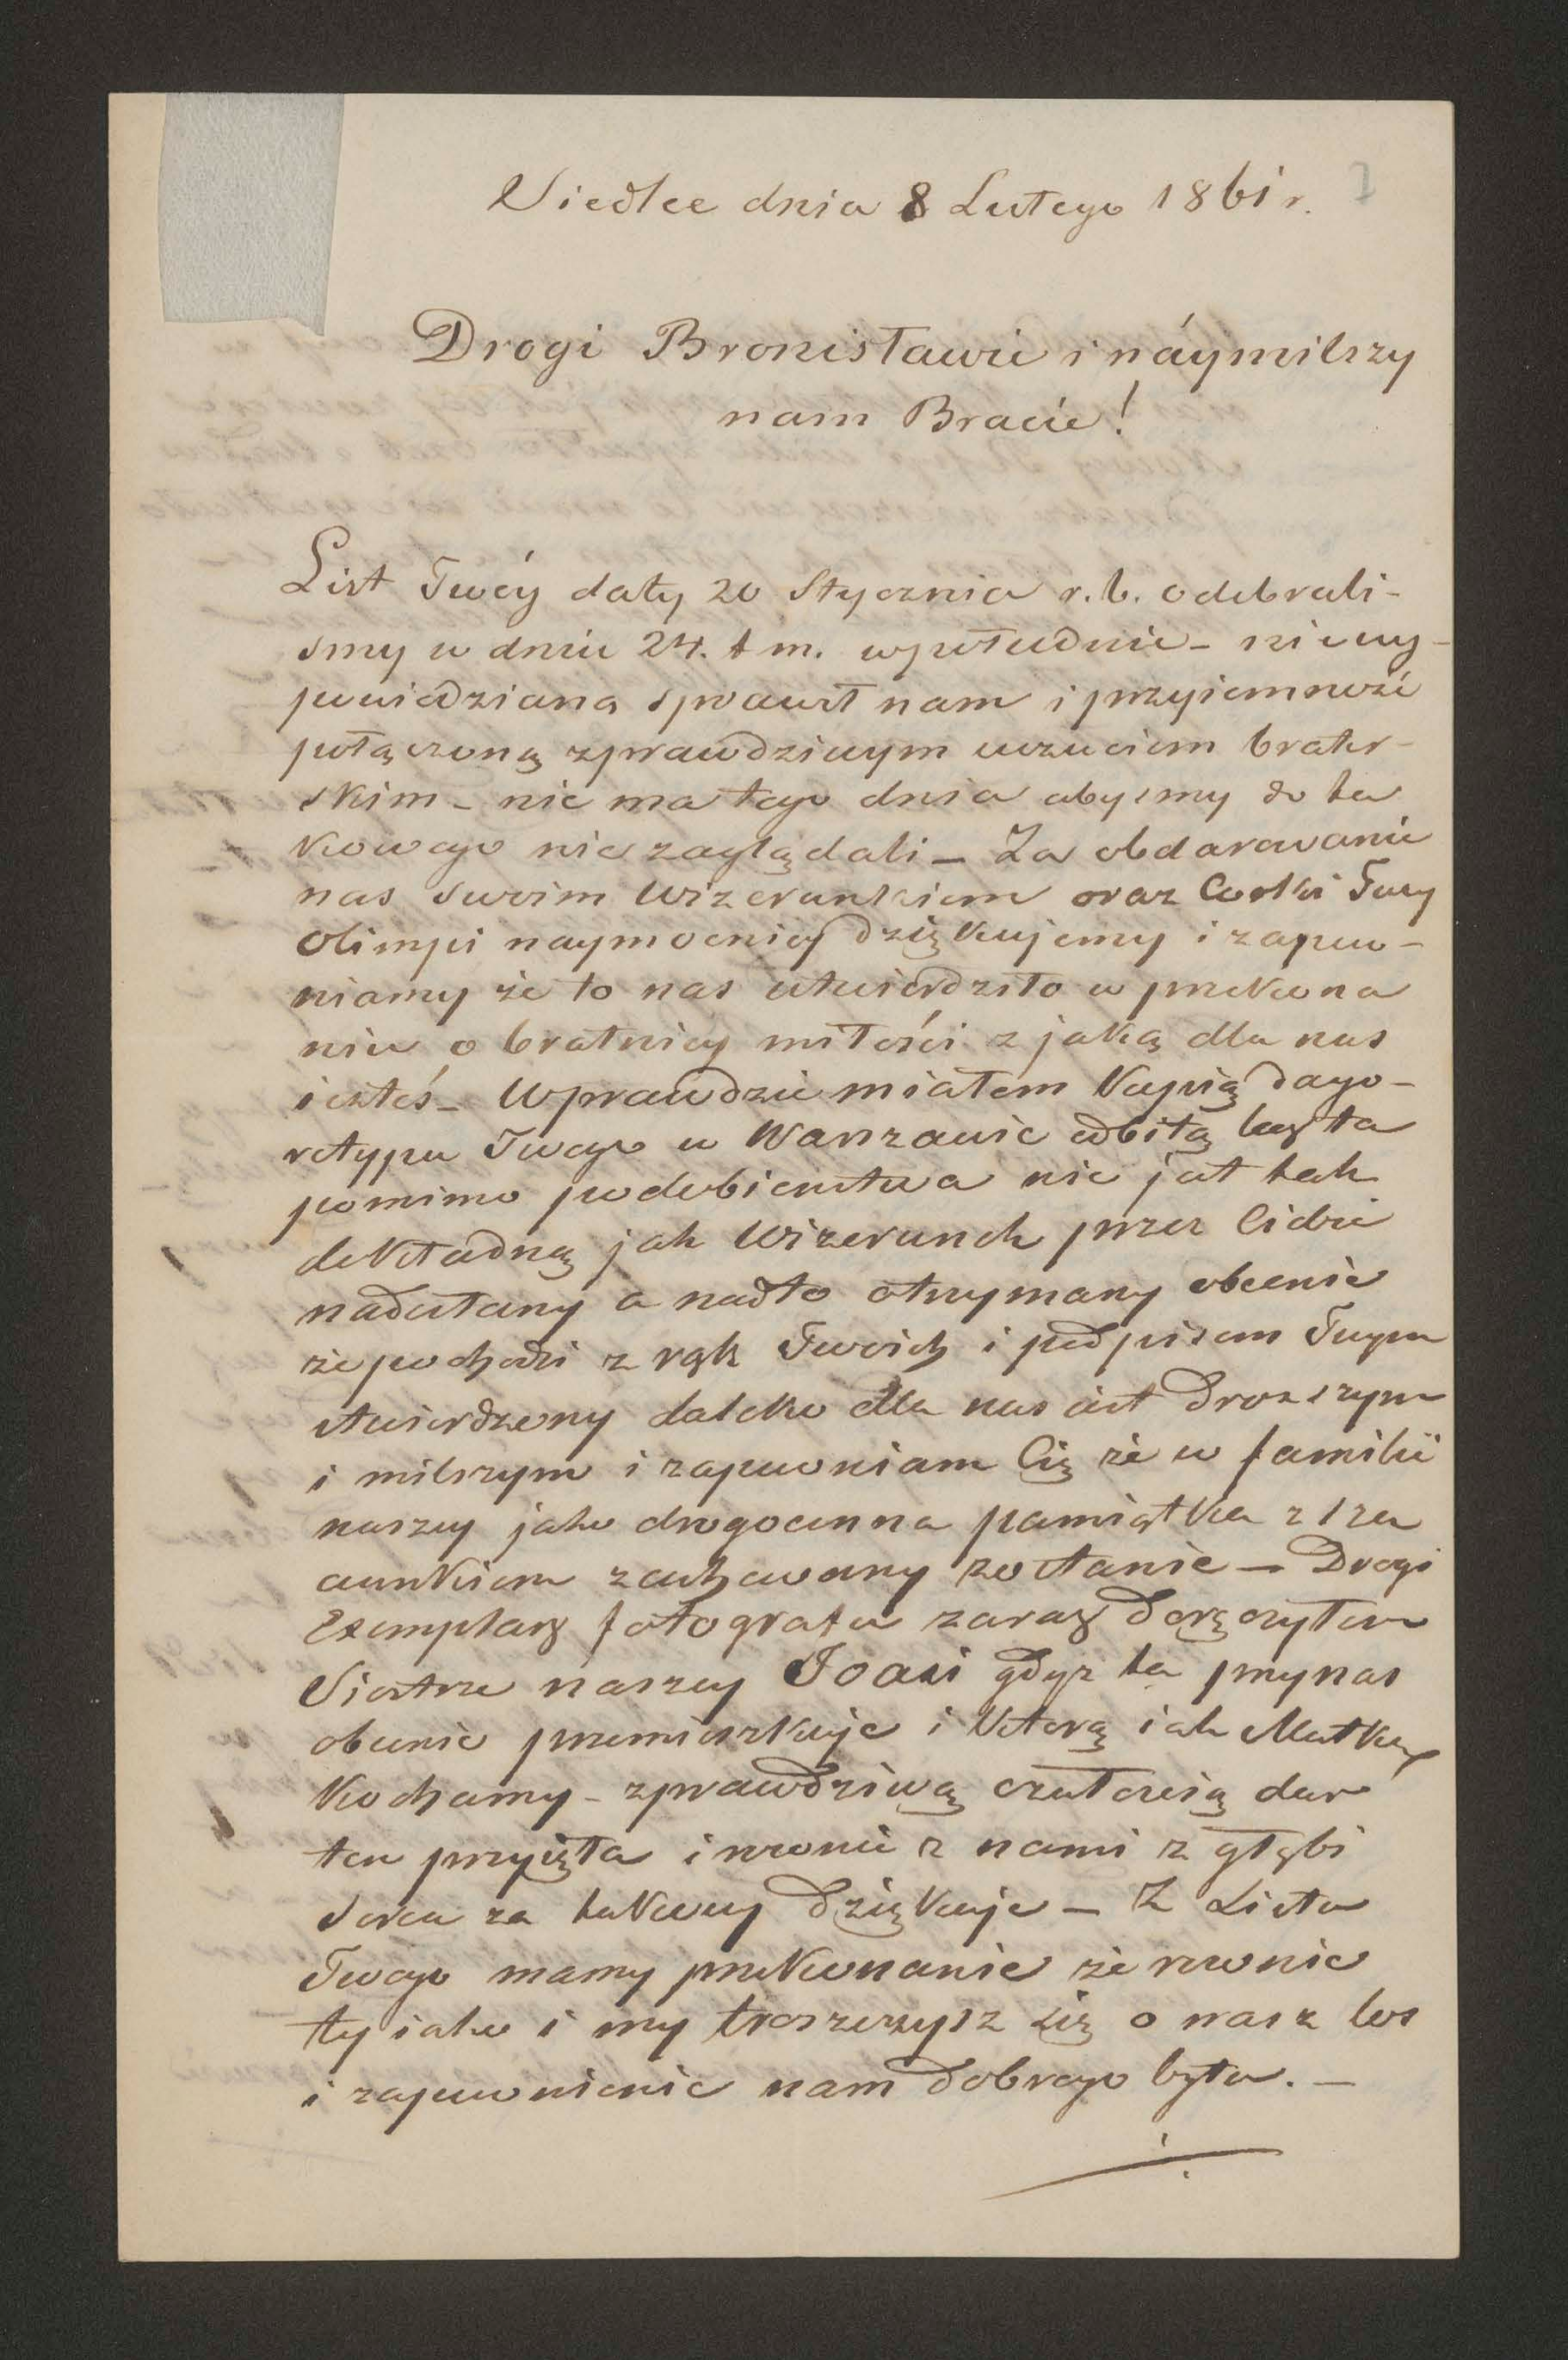 Siedlce dnia 8 Lutego 1861 r.
Drogi Bronisławie i náymilszy
nam Bracie!
List Twóy daty 20 Stycznia r. b. odebrali-
smy w dniu 24. t m. wpołudnie – niewy-
powiedzianą sprawił nam i przyiemność
połączoną zprawdziwym uczuciem brater-
skim – nie ma tego dnia abysmy do ta
kowego nie zaglądali – Za obdarowanie
nas swoim Wizerunkiem oraz Corki Twey
Olimpi naymocniey dziękujemy i zapew-
niamy że to nas utwierdziło w przekona
niu o bratniey miłości z jaką dla nas
iesteś – Wprawdzie miałem Kopią dago-
rotypu Twego w Warszawie odbitą lecz ta
pomimo podobienstwa nie jest tak
dokładną jak Wizerunek przez Ciebie
nadesłany a nadto otrzymany obecnie
że pochodzi z rąk Twoich i podpisem Twym
stwierdzony daleko dla nas iest droższym
i milszym i zapewniam Cię że w familii
naszey jako drogocenna pamiątka z sza
cunkiem zachowany zostanie – Drugi
Exemplarz fotografii zaraz doręczyłem
Siostrze naszey Joasi gdyż ta przynas
obecnie przemieszkuje i Ktorą iak Matkę
Kochamy – zprawdziwą czułością dar
ten przyięła i rownie z nami z głębi
serca za takowy dziękuje – Z Listu
Twego mamy przekonanie że rownie
ty iako i my troszczysz się o nasz los
i zapewnienie nam dobrego bytu. –